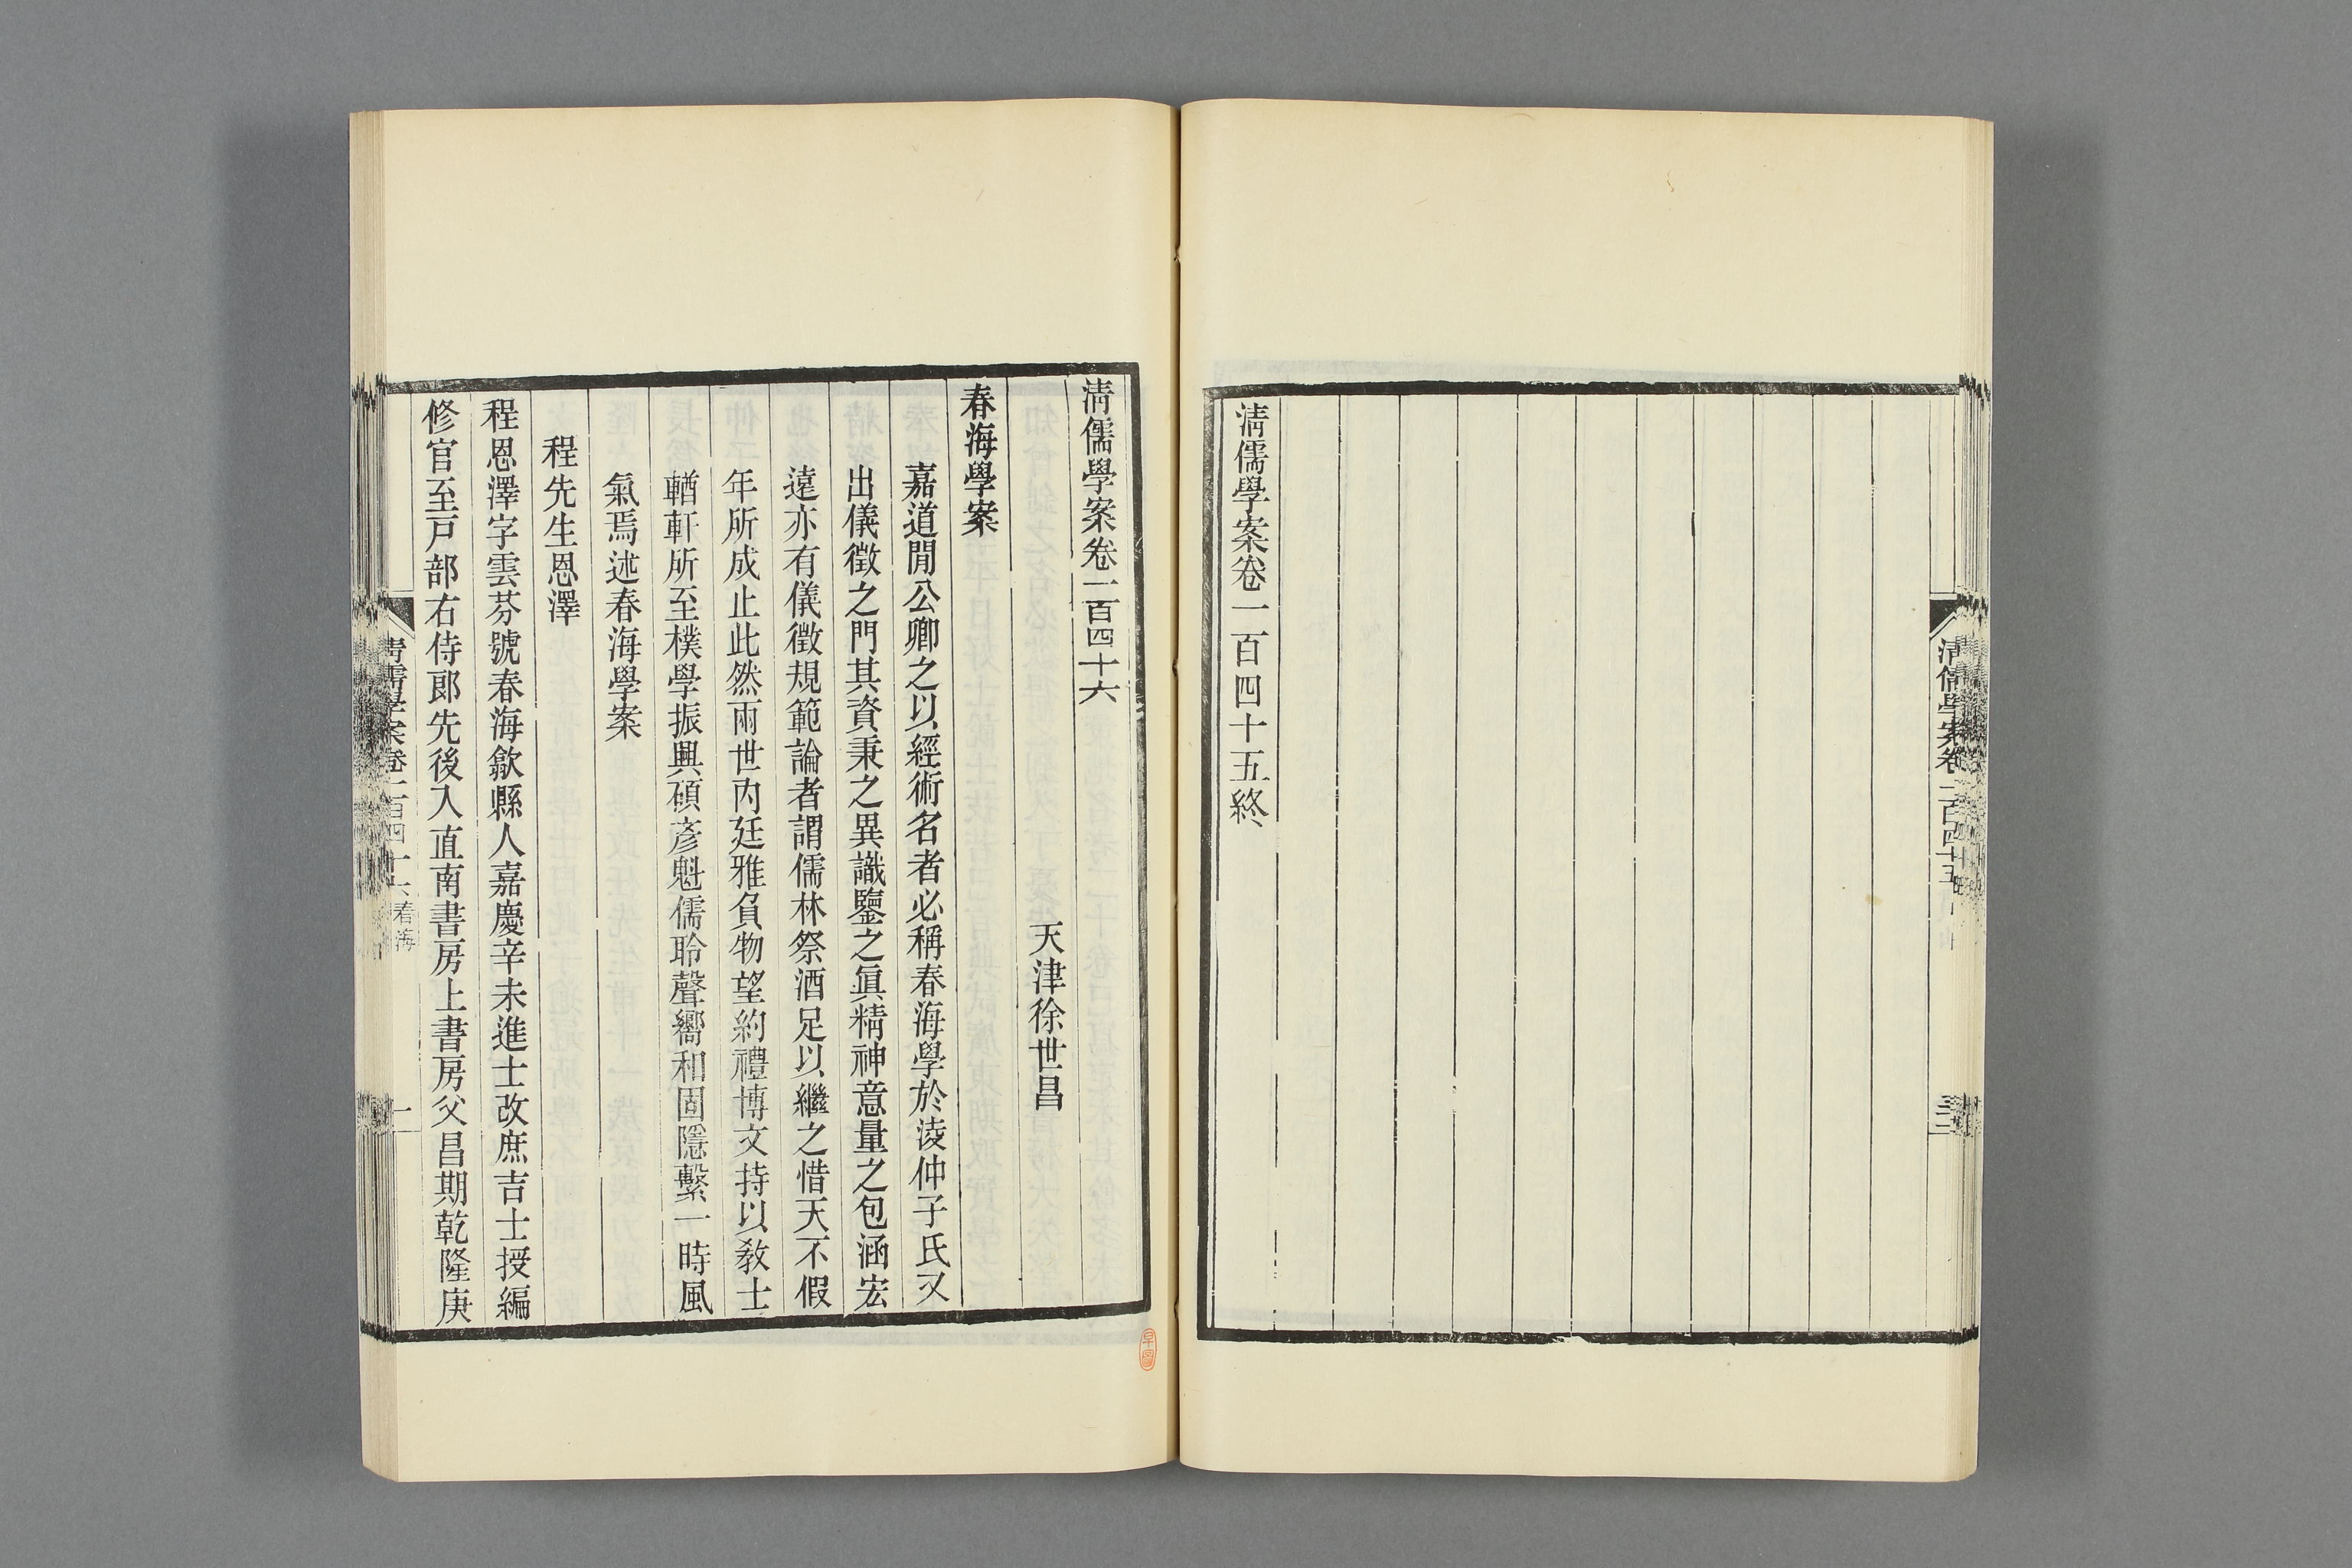 清儒學案卷一百四十五
清儒學案卷一百四十五終
清儒學案卷一百四十六
天津徐世昌
春海學案
嘉道閒公卿之以經術名者必稱春海學於淩仲子氏又
出儀徵之門其資秉之異識鑒之眞精神意量之包涵宏
遠亦有儀徵規範論者謂儒林祭酒足以繼之惜天不假
年所成止此然兩世內廷雅負物望約禮博文持以敎士
輶軒所至樸學振興碩彥魁儒聆聲嚮和固隱繫一時風
氣焉述春海學案
程先生恩澤
程恩澤字雲芬號春海歙縣人嘉慶辛未進士改庶吉士授編
修官至戸部右侍郎先後入直南書房上書房父昌期乾隆庚
清儒學案卷一百四十六 春海 一